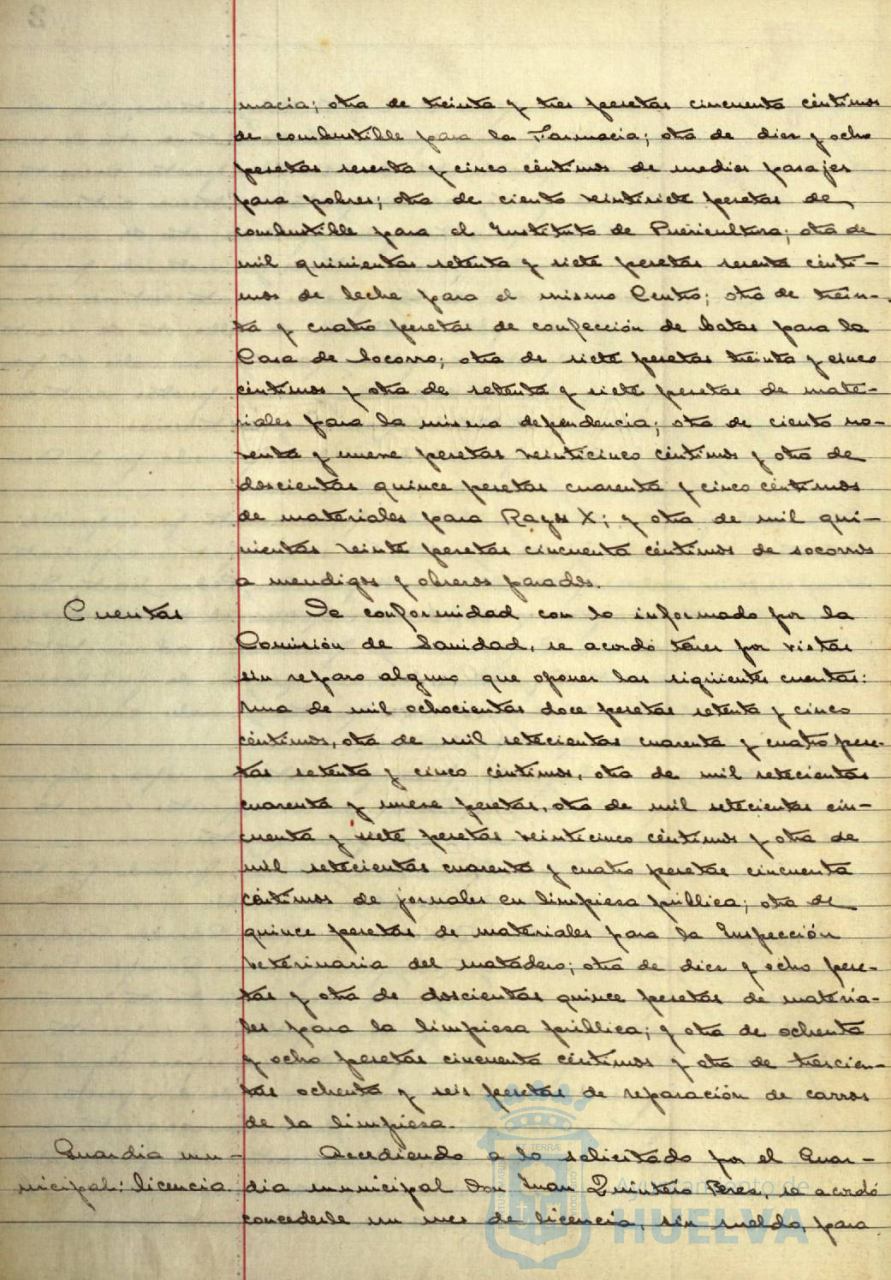 macia; otra de treinta y tres pesetas cincuenta céntimos
de combustible para la Farmacia; otra de diez y ocho
pesetas sesenta y cinco céntimos de medios pasajes
para pobres; otra de ciento veintisiete pesetas de
combustible para el Instituto de Puericultura; otra de
mil quinientas setenta y siete pesetas sesenta cénti-
mos de leche para el mismo Centro; otra de trein-
ta y cuatro pesetas de confección de batas para la
Casa de Socorro; otra de siete pesetas treinta y cinco
céntimos y otra de setenta y siete pesetas de mate-
riales para la misma dependencia; otra de ciento no-
venta y nueve pesetas veinticinco céntimos y otra de
doscientas quince pesetas cuarenta y cinco céntimos
de materiales para Rayos X; y otra de mil qui-
nientas veinte pesetas cincuenta céntimos de socorros
a mendigos y obreros parados.
Cuentas
De conformidad con lo informado por la
Comisión de Sanidad, se acordó tener por vistas
sin reparo alguno que oponer las siguientes cuentas:
Una de mil ochocientas doce pesetas setenta y cinco
céntimos, otra de mil setecientas cuarenta y cuatro pese-
tas setenta y cinco céntimos, otra de mil setecientas
cuarenta y nueve pesetas, otra de mil setecientas cin-
cuenta y siete pesetas veinticinco céntimos y otra de
mil setecientas cuarenta y cuatro pesetas cincuenta
céntimos de jornales en limpieza pública; otra de
quince pesetas de materiales para la Inspección
Veterinaria del matadero; otra de diez y ocho pese-
tas y otra de doscientas quince pesetas de materia-
les para la limpieza pública; y otra de ochenta
y ocho pesetas cincuenta céntimos y otra de trescien-
tas ochenta y seis pesetas de reparación de carros
de la limpieza.
Guardia mu-
nicipal: licencia
Accediendo a lo solicitado por el Guar-
dia municipal Don Juan Quintero Perez, se acordó
concederle un mes de licencia, sin sueldo, para
Ayuntamiento de
HUELVA